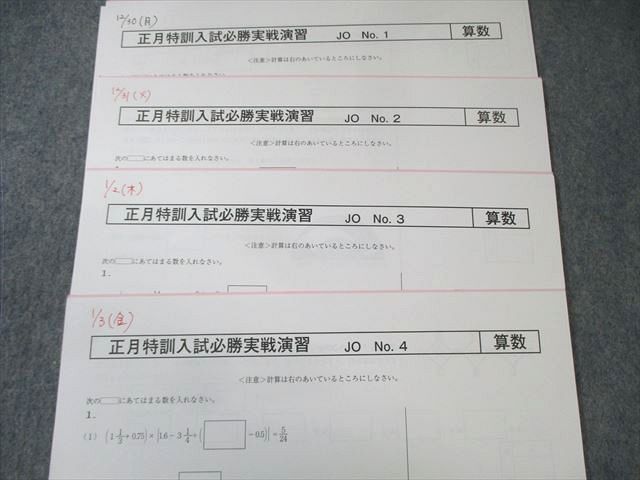 12/30(月)
正月特訓入試必勝実戦演習 JO No. 1 算数
<注意>計算は右のあいているところにしなさい。
12/31(火)
正月特訓入試必勝実戦演習 JO No. 2 算数
<注意>計算は右のあいているところにしなさい。
次の□にあてはまる数を入れなさい。
1/2(木)
正月特訓入試必勝実戦演習 JO No. 3 算数
<注意>計算は右のあいているところにしなさい。
次の□にあてはまる数を入れなさい。
1.
1/3(金)
正月特訓入試必勝実戦演習 JO No. 4 算数
<注意>計算は右のあいているところにしなさい。
次の□にあてはまる数を入れなさい。
1.
(1) (1 1/3+0.75)×{1.6-3 1/4÷(□-0.5)}=5/24